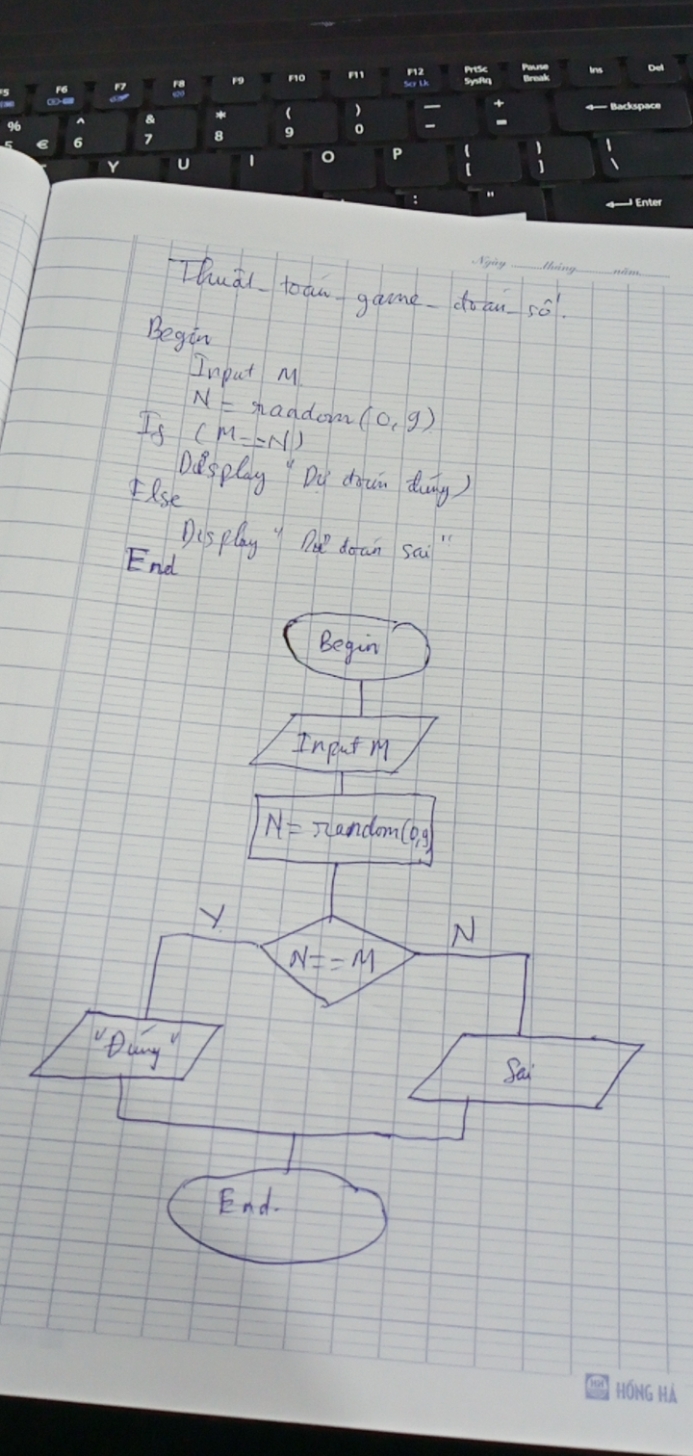 F5 F6 F7 F8 F9 F10 F11 F12 PrtSc Pause Ins Del
Scr Lk SysRq Break
% ^ & * ( ) — + ← Backspace
5 € 6 7 8 9 0 - =
Y U I O P { } |
[ ] \
: " ← Enter
Ngày ......... tháng ......... năm .........
Thuật toán game đoán số.
Begin
Input M
N = random(0,9)
If (M==N)
Display " Dự đoán đúng)
Else
Display " Dự đoán sai"
End
Begin
Input M
N = random(0,9)
Y N
N == M
"Đúng" Sai
End.
HH HỒNG HÀ